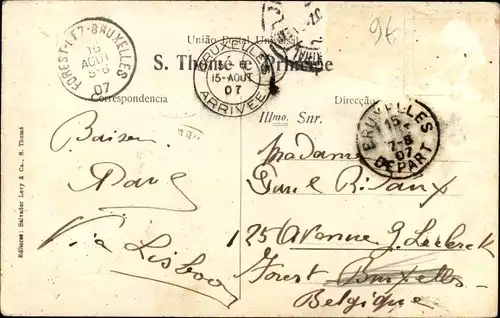 96
União Postal Universal
S. Thomé e Principe
FOREST-LEZ-BRUXELLES
15
AOUT
5-6
07
BRUXELLES
15-AOUT
07
ARRIVÉE
Correspondencia
Direcção
BRUXELLES
15
7-8
07
DEPART
Illmo. Snr.
Madame
125 Avenue G. Leclerck
Forest Bruxelles
Belgique
Via Lisboa
Editores: Salvador Levy & Ca., S. Thomé